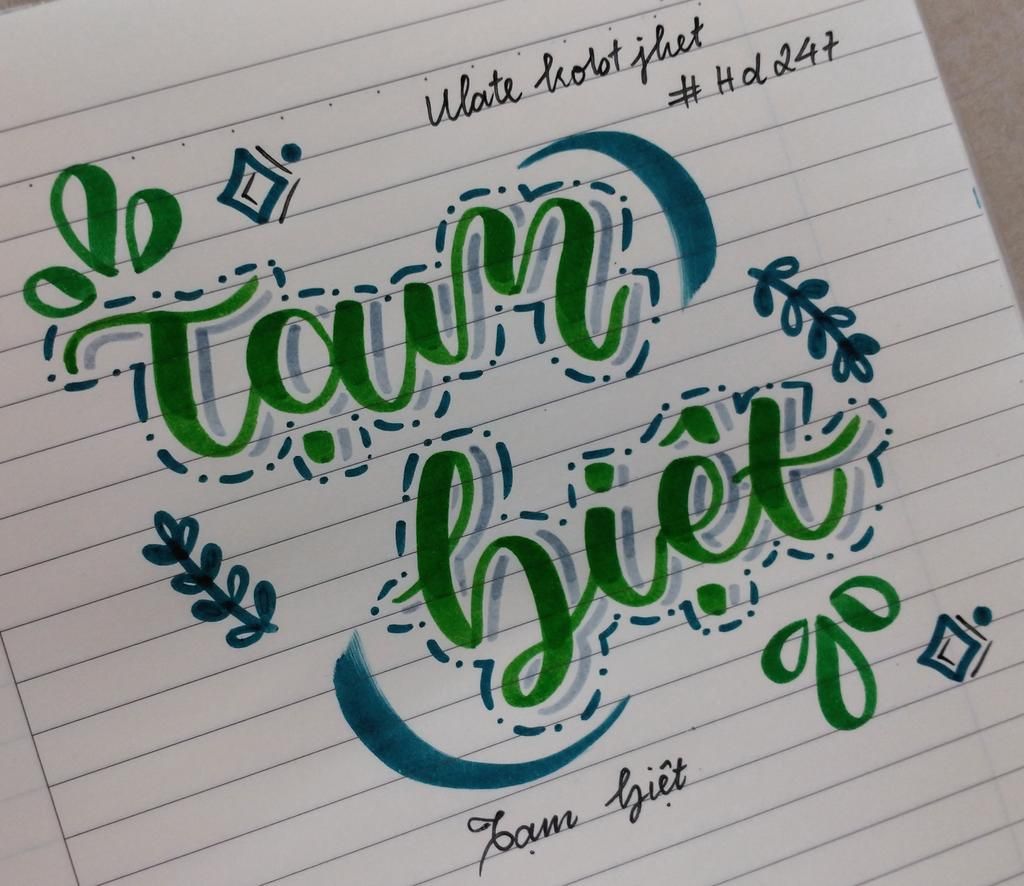 Ulate kobt jhet
# Hd247
Tạm
biệt
Tạm biệt